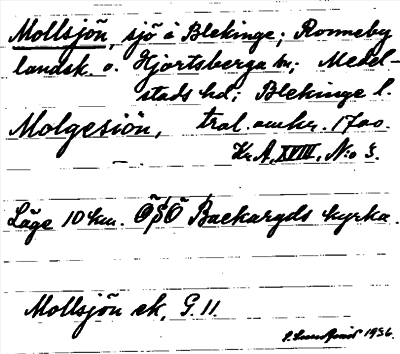 Mollsjön, sjö i Blekinge; Ronneby
landsk. o. Hjortsberga sn; Medel-
stads hd; Blekinge l.
Molgesiön, tral. omkr. 1700.
Kr. A. XVIII. N:o 3.
Läge 10 km. ÖSÖ Backaryds kyrka.
Mollsjön ek, G. 11
1936.